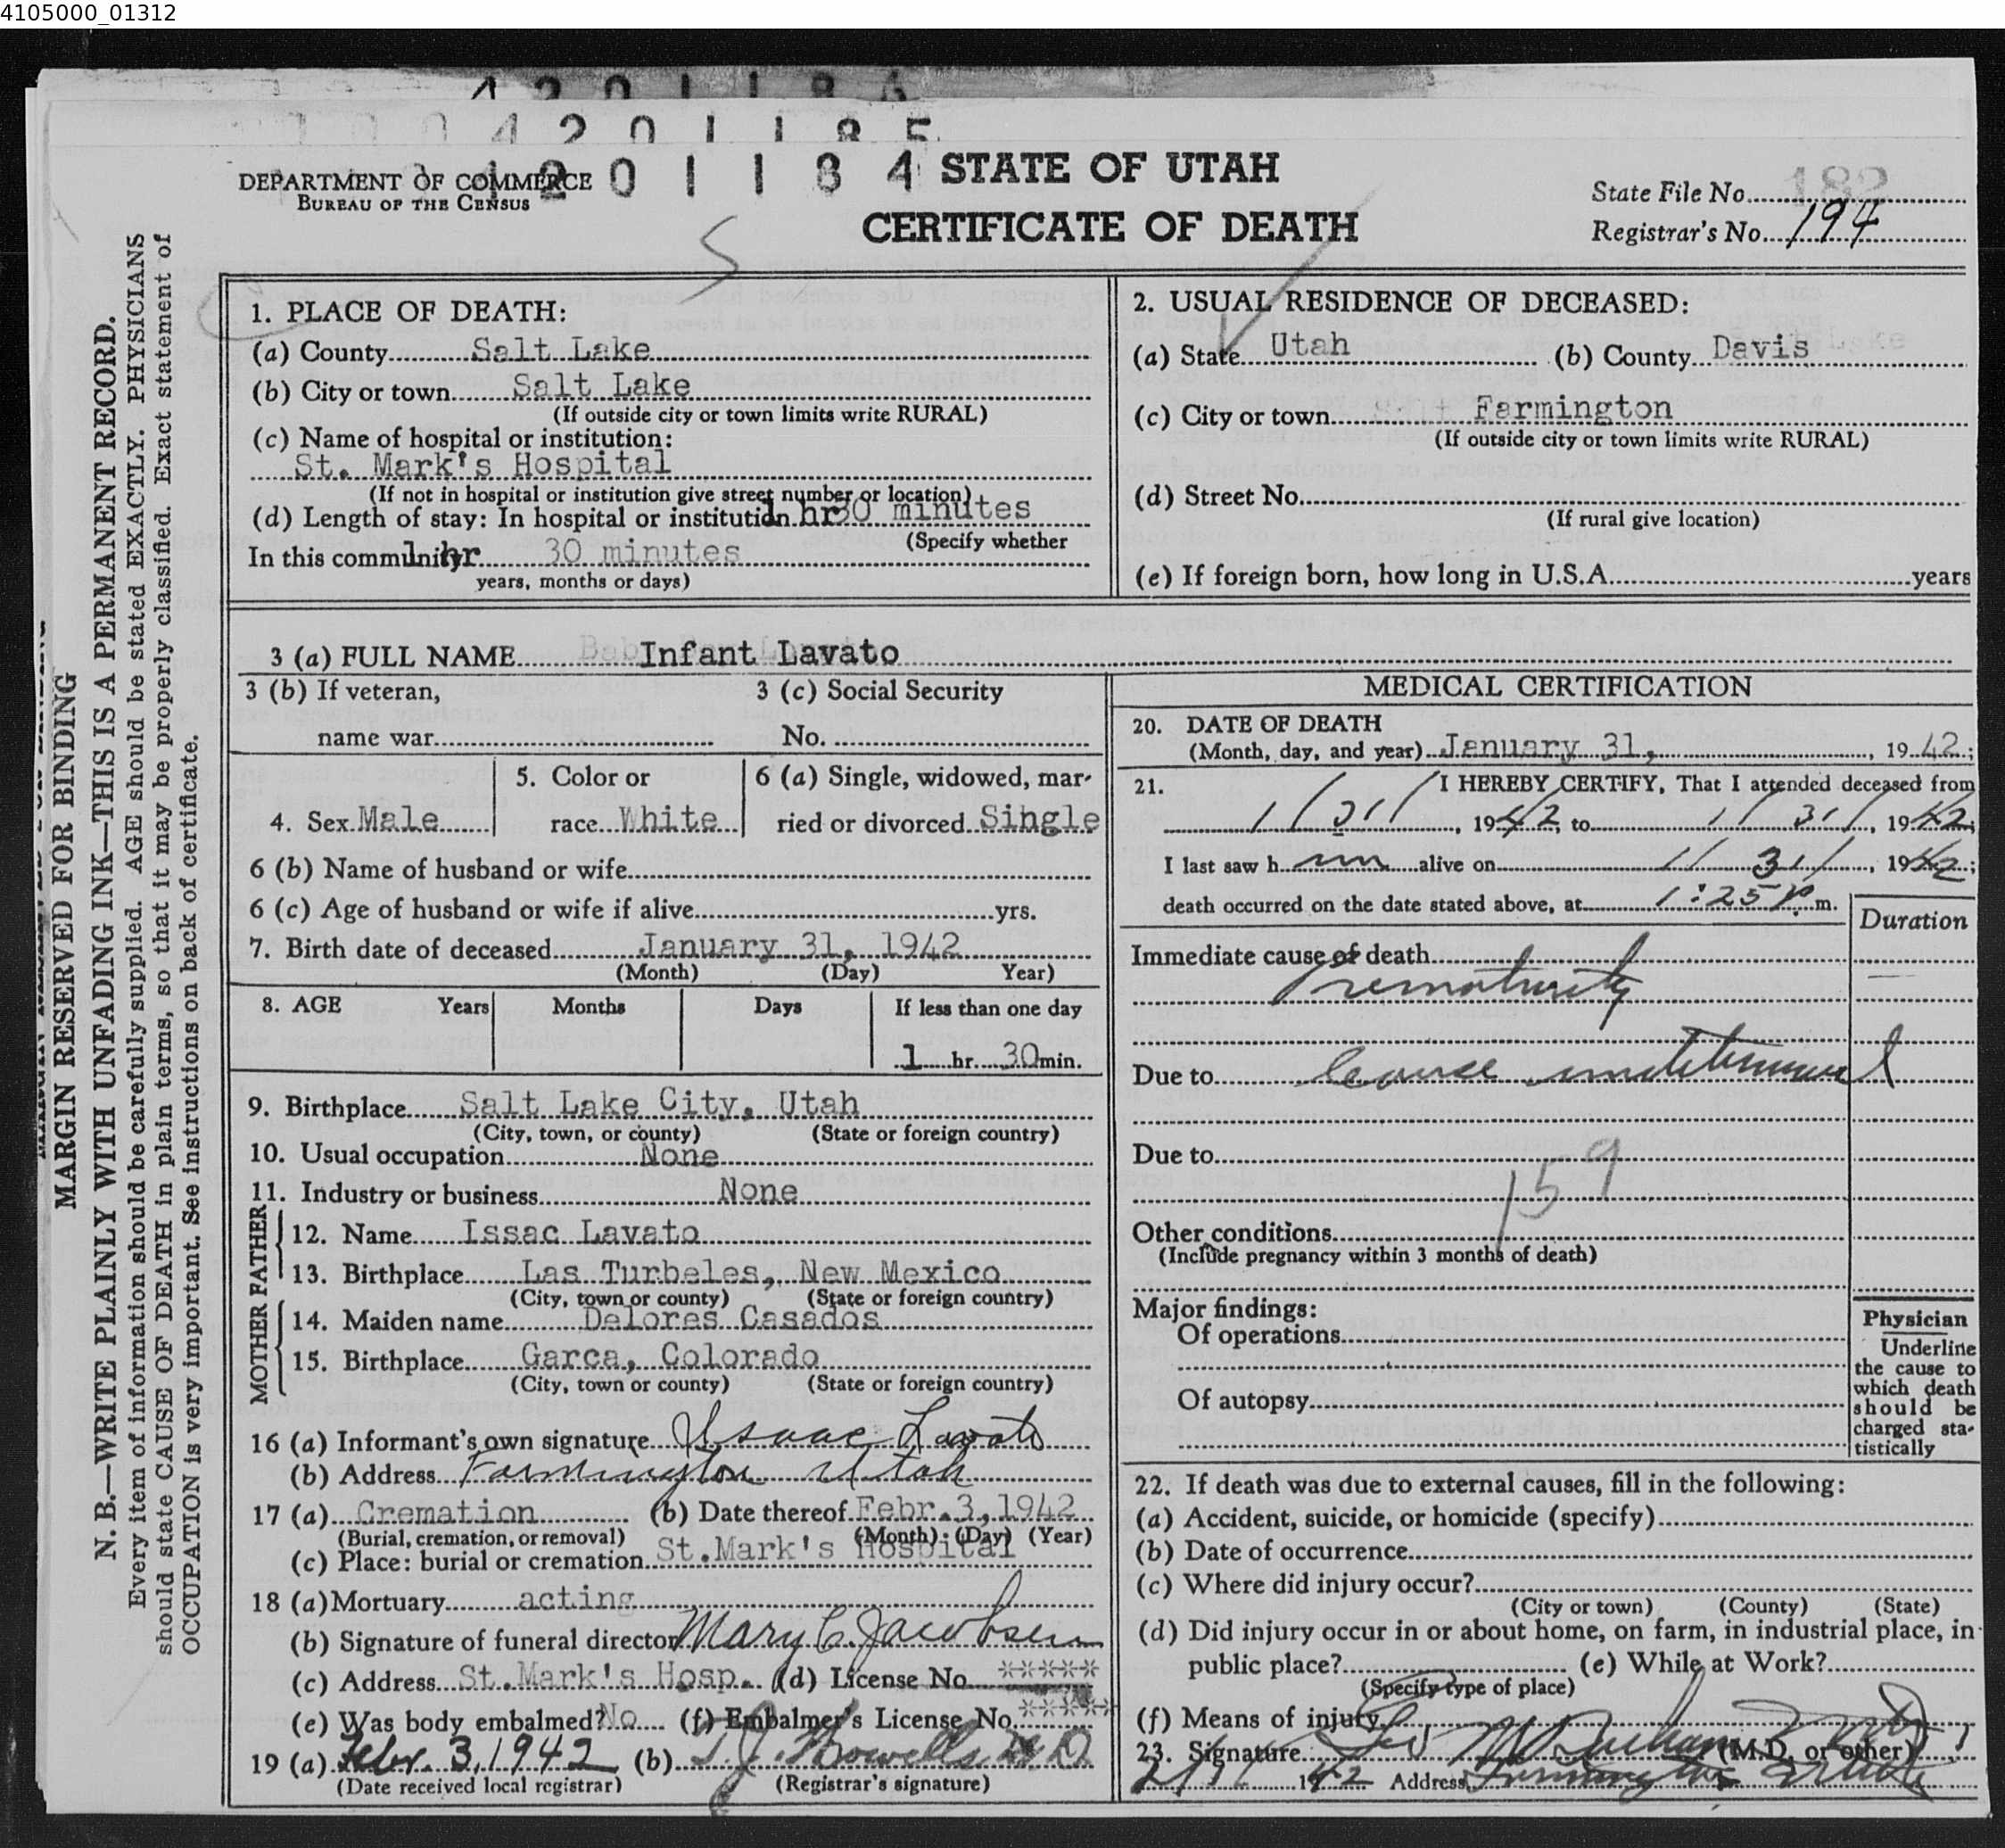 4105000_01312
4201184 STATE OF UTAH
DEPARTMENT OF COMMERCE
BUREAU OF THE CENSUS
CERTIFICATE OF DEATH
State File No. 182
Registrar's No. 194
MARGIN RESERVED FOR BINDING
N. B.—WRITE PLAINLY WITH UNFADING INK—THIS IS A PERMANENT RECORD.
Every item of information should be carefully supplied. AGE should be stated EXACTLY. PHYSICIANS
should state CAUSE OF DEATH in plain terms, so that it may be properly classified. Exact statement of
OCCUPATION is very important. See instructions on back of certificate.
1. PLACE OF DEATH:
(a) County Salt Lake
(b) City or town Salt Lake
(If outside city or town limits write RURAL)
(c) Name of hospital or institution:
St. Mark's Hospital
(If not in hospital or institution give street number or location)
(d) Length of stay: In hospital or institution 1 hr 30 minutes
(Specify whether
In this community 1 hr 30 minutes
years, months or days)
2. USUAL RESIDENCE OF DECEASED:
(a) State Utah (b) County Davis
(c) City or town Farmington
(If outside city or town limits write RURAL)
(d) Street No.
(If rural give location)
(e) If foreign born, how long in U.S.A. years
3 (a) FULL NAME Infant Lavato
3 (b) If veteran,
name war
3 (c) Social Security
No.
4. Sex Male
5. Color or
race White
6 (a) Single, widowed, mar-
ried or divorced Single
6 (b) Name of husband or wife
6 (c) Age of husband or wife if alive yrs.
7. Birth date of deceased January 31, 1942
(Month) (Day) Year)
8. AGE Years Months Days If less than one day
1 hr. 30 min.
9. Birthplace Salt Lake City, Utah
(City, town, or county) (State or foreign country)
10. Usual occupation None
11. Industry or business None
FATHER
12. Name Issac Lavato
13. Birthplace Las Turbeles, New Mexico
(City, town or county) (State or foreign country)
MOTHER
14. Maiden name Delores Casados
15. Birthplace Garca, Colorado
(City, town or county) (State or foreign country)
16 (a) Informant's own signature Isaac Lavato
(b) Address Farmington Utah
17 (a) Cremation (b) Date thereof Febr. 3, 1942
(Burial, cremation, or removal) (Month) (Day) (Year)
(c) Place: burial or cremation St. Mark's Hospital
18 (a) Mortuary acting
(b) Signature of funeral director Mary C. Jacobsen
(c) Address St. Mark's Hosp. (d) License No. *****
(e) Was body embalmed? No (f) Embalmer's License No. *****
19 (a) Febr. 3, 1942 (b) T. J. Howells M.D.
(Date received local registrar) (Registrar's signature)
MEDICAL CERTIFICATION
20. DATE OF DEATH
(Month, day, and year) January 31, 1942;
21. I HEREBY CERTIFY, That I attended deceased from
1/31/, 1942, to 1/31/, 1942;
I last saw h im alive on 1/31/, 1942;
death occurred on the date stated above, at 1:25 p. m.
Duration
Immediate cause of death
Prematurity
Due to Cause undetermined
Due to
159
Other conditions
(Include pregnancy within 3 months of death)
Major findings:
Of operations
Of autopsy
Physician
Underline
the cause to
which death
should be
charged sta-
tistically
22. If death was due to external causes, fill in the following:
(a) Accident, suicide, or homicide (specify)
(b) Date of occurrence
(c) Where did injury occur?
(City or town) (County) (State)
(d) Did injury occur in or about home, on farm, in industrial place, in
public place? (e) While at Work?
(Specify type of place)
(f) Means of injury
23. Signature (M.D. or other)
1942 Address Farmington Utah